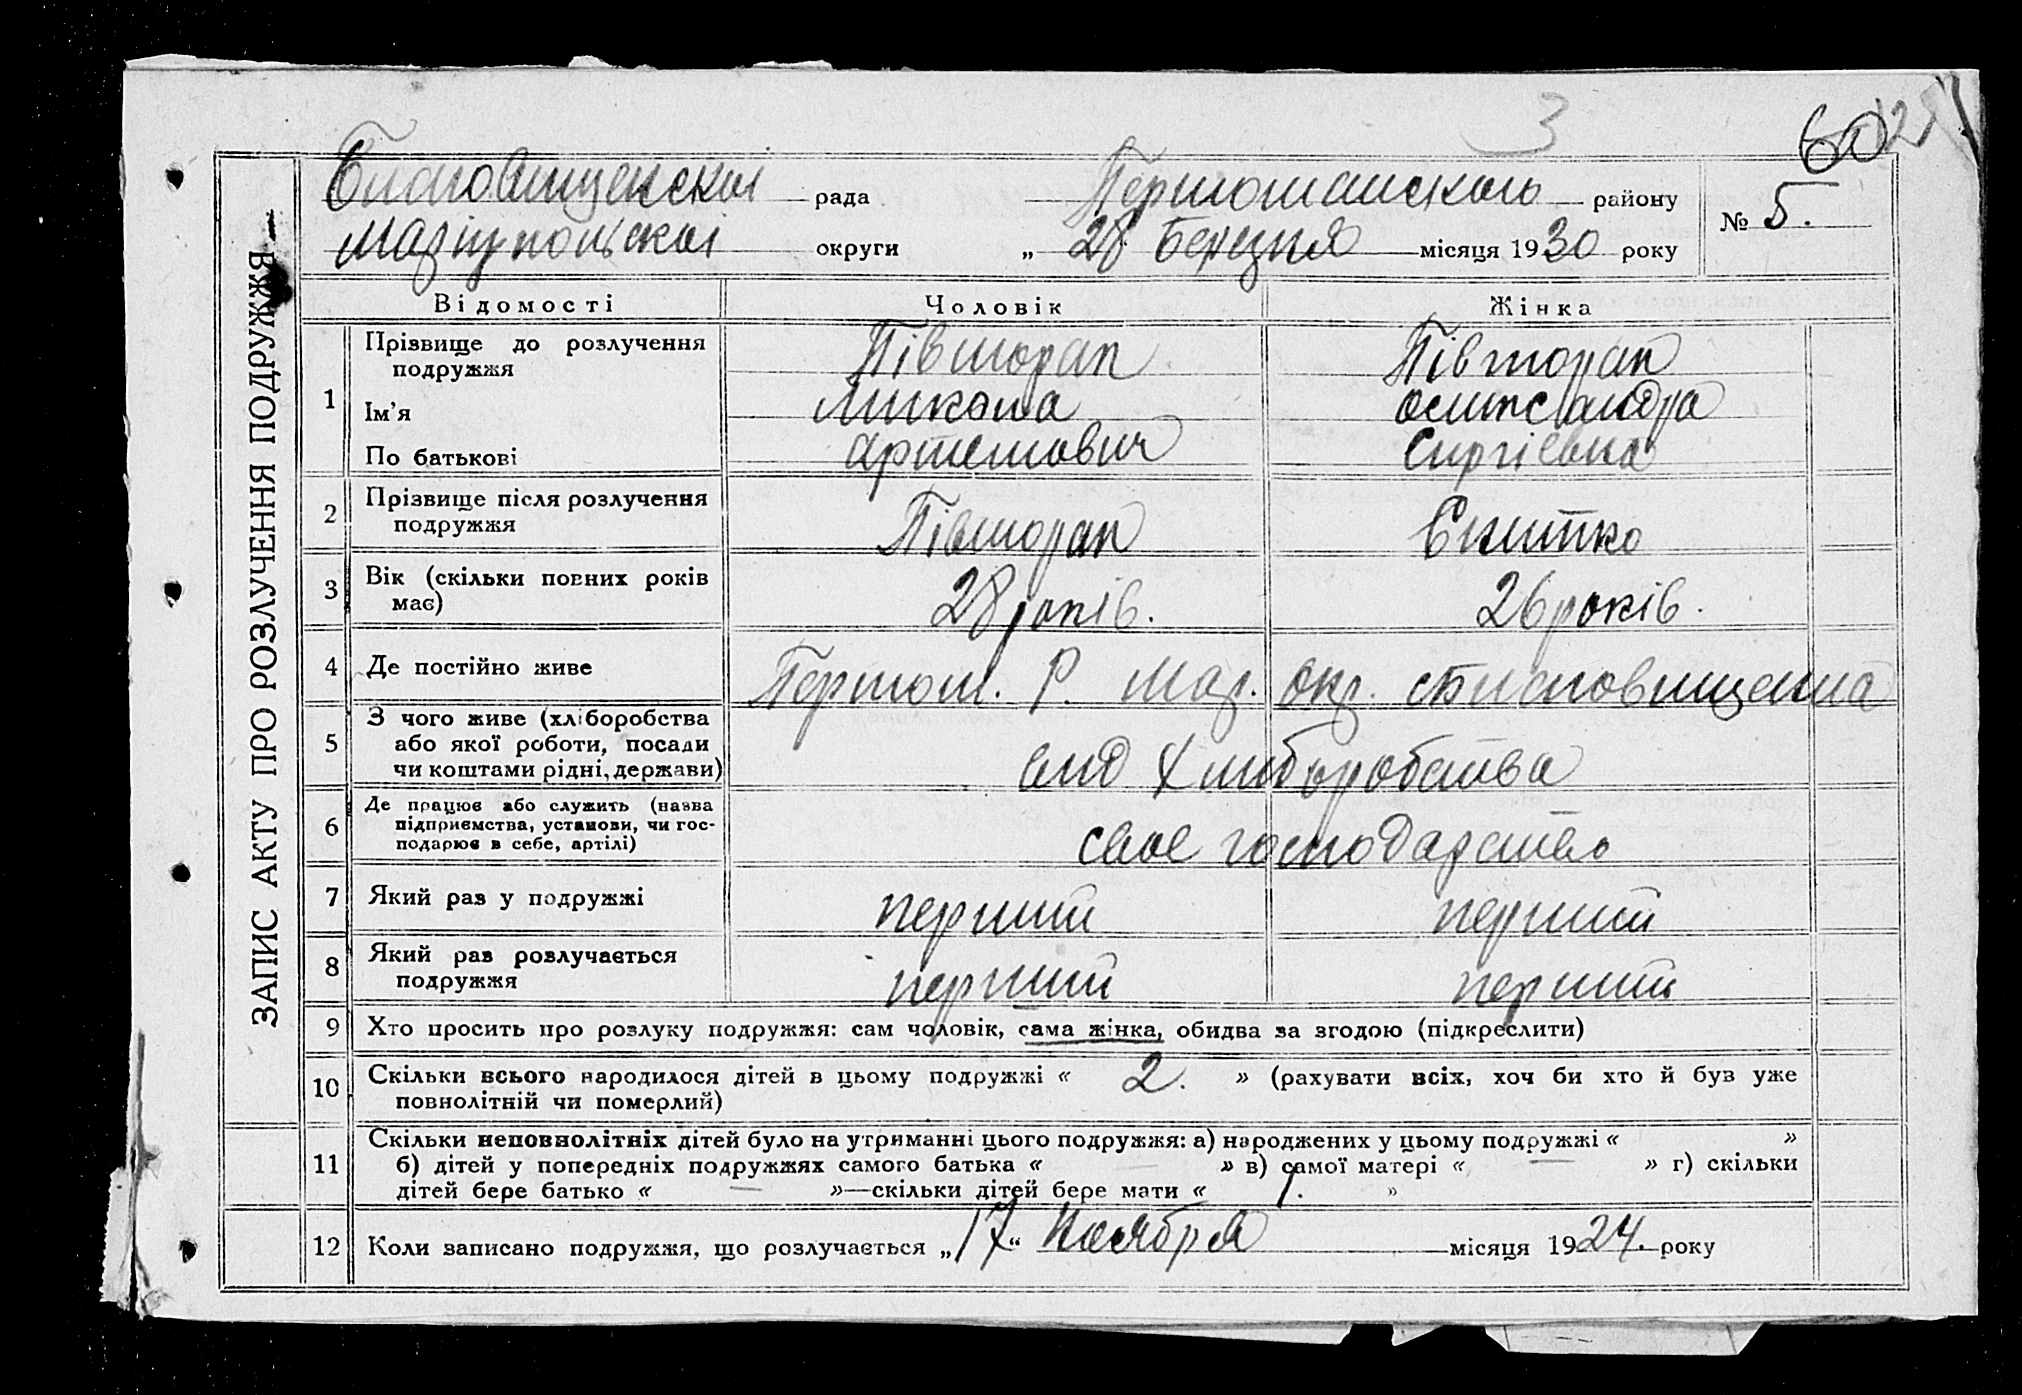 3
602
ЗАПИС АКТУ ПРО РОЗЛУЧЕННЯ ПОДРУЖЖЯ
Благовищенскої рада Першотравського району № 5.
Маріупольскої округи „ 28 Березня місяця 1930 року
Відомості Чоловік Жінка
1 Прізвище до розлучення подружжя Півторап Півторап
Ім'я Микола Олександра
По батькові Артемович Сиргієвна
2 Прізвище після розлучення подружжя Півторап
3 Вік (скільки повних років має) 28 років. 26 років.
4 Де постійно живе Першот. Р. Мар. Окр. с Благовищенка
5 З чого живе (хліборобства або якої роботи, посади чи коштами рідні, держави) вид Хлиборобства
6 Де працює або служить (назва підприємства, установи, чи господарює в себе, артілі) своє господарство
7 Який раз у подружжі перший перший
8 Який раз розлучається подружжя перший перший
9 Хто просить про розлуку подружжя: сам чоловік, сама жінка, обидва за згодою (підкреслити)
10 Скільки всього народилося дітей в цьому подружжі « 2. » (рахувати всіх, хоч би хто й був уже
повнолітній чи померлий)
11 Скільки неповнолітніх дітей було на утриманні цього подружжя: а) народжених у цьому подружжі « »
б) дітей у попередніх подружжях самого батька « — » в) самої матері « — » г) скільки
дітей бере батько « — »—скільки дітей бере мати « 1. »
12 Коли записано подружжя, що розлучається „17“ Ноября місяця 1924 року